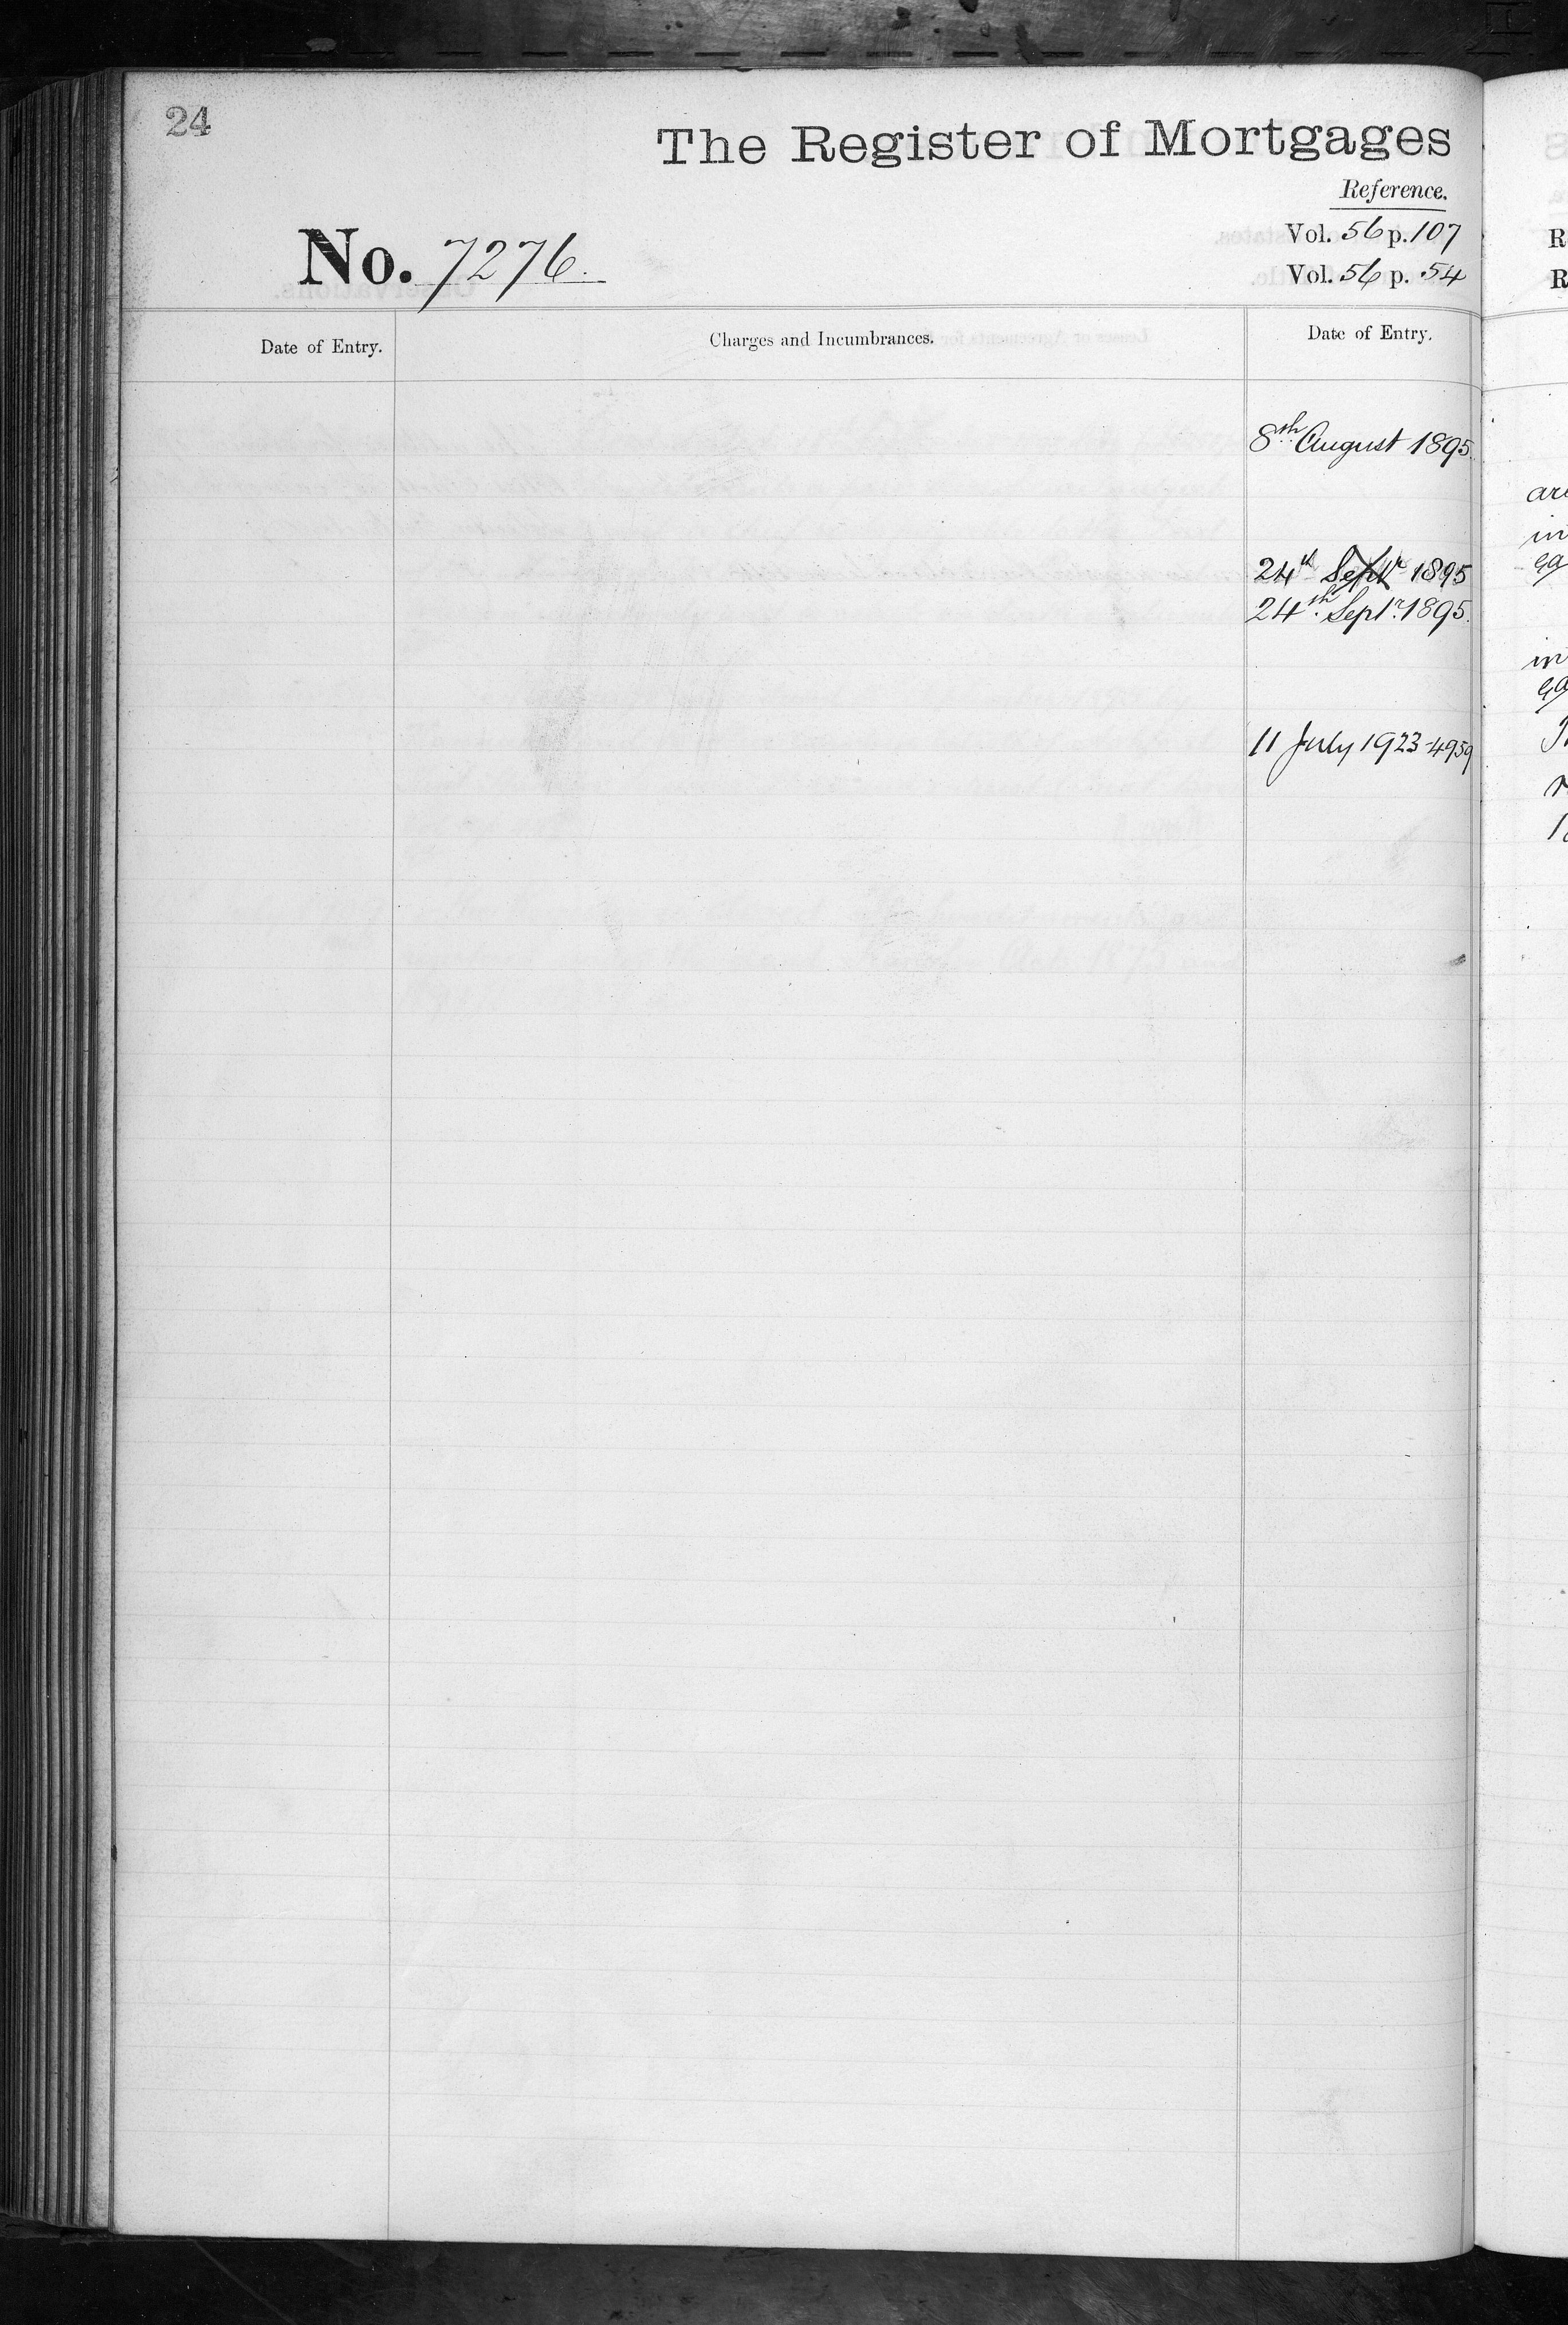 24
The Register of Mortgages
Reference.
No. 7276.
Vol. 56 p. 107
Vol. 56 p. 54
Date of Entry.
Charges and Incumbrances.
Date of Entry.
8th August 1895.
24th Septr 1895
24th Septr. 1895.
11 July 1923-4959